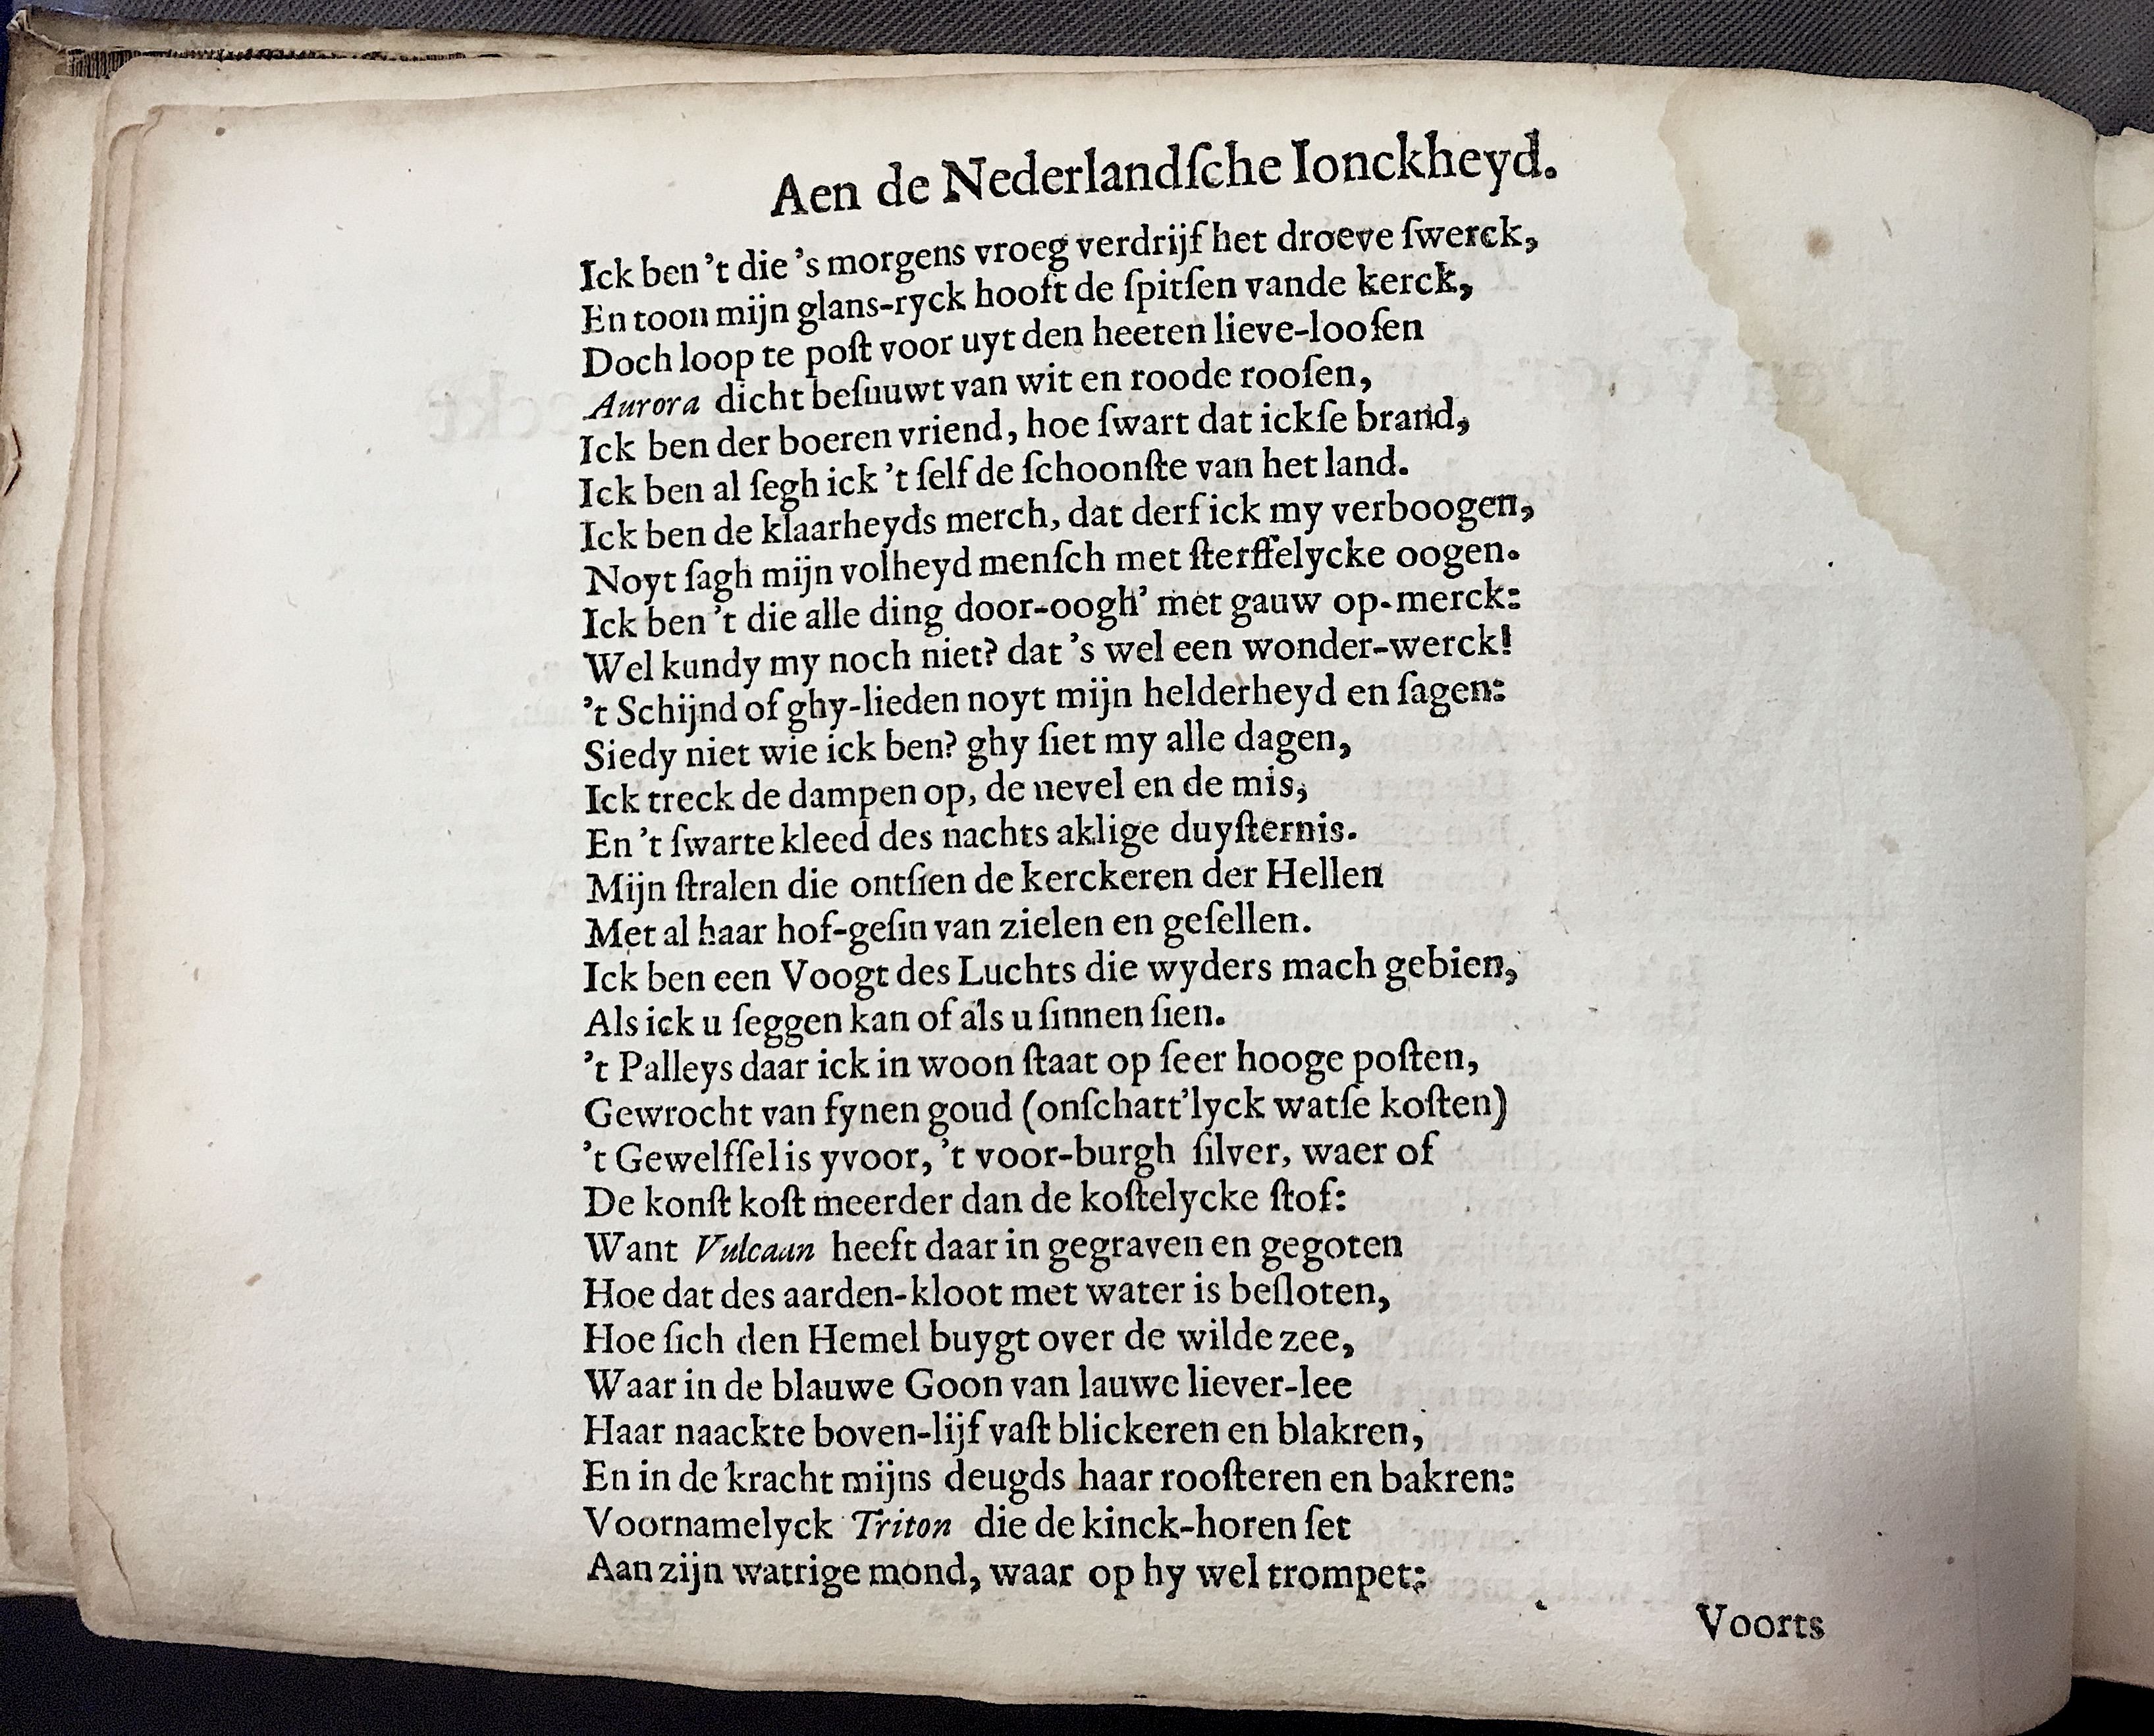 Aen de Nederlandſche Ionckheyd.
Ick ben 't die 's morgens vroeg verdrijf het droeve ſwerck,
En toon mijn glans-ryck hooft de ſpitſen vande kerck,
Doch loop te poſt voor uyt den heeten lieve-looſen
Aurora dicht beſnuwt van wit en roode rooſen,
Ick ben der boeren vriend, hoe ſwart dat ickſe brand,
Ick ben al ſegh ick 't ſelf de ſchoonſte van het land.
Ick ben de klaarheyds merch, dat derf ick my verboogen,
Noyt ſagh mijn volheyd menſch met ſterffelycke oogen.
Ick ben 't die alle ding door-oogh' met gauw op-merck:
Wel kundy my noch niet? dat 's wel een wonder-werck!
't Schijnd of ghy-lieden noyt mijn helderheyd en ſagen:
Siedy niet wie ick ben? ghy ſiet my alle dagen,
Ick treck de dampen op, de nevel en de mis,
En 't ſwarte kleed des nachts aklige duyſternis.
Mijn ſtralen die ontſien de kerckeren der Hellen
Met al haar hof-geſin van zielen en geſellen.
Ick ben een Voogt des Luchts die wyders mach gebien,
Als ick u ſeggen kan of als u ſinnen ſien.
't Palleys daar ick in woon ſtaat op ſeer hooge poſten,
Gewrocht van fynen goud (onſchatt'lyck watſe koſten)
't Gewelfſel is yvoor, 't voor-burgh ſilver, waer of
De konſt koſt meerder dan de koſtelycke ſtof:
Want Vulcaan heeft daar in gegraven en gegoten
Hoe dat des aarden-kloot met water is beſloten,
Hoe ſich den Hemel buygt over de wilde zee,
Waar in de blauwe Goon van lauwe liever-lee
Haar naackte boven-lijf vaſt blickeren en blakren,
En in de kracht mijns deugds haar rooſteren en bakren:
Voornamelyck Triton die de kinck-horen ſet
Aan zijn watrige mond, waar op hy wel trompet:
Voorts